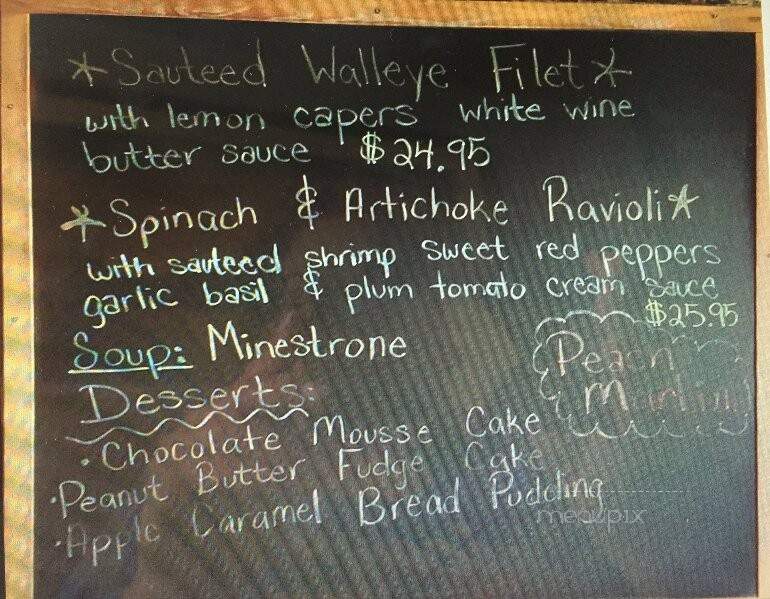 *Sauteed Walleye Filet*
with lemon capers white wine
butter sauce $24.95
*Spinach & Artichoke Ravioli*
with sauteed shrimp sweet red peppers
garlic basil & plum tomato cream sauce
$25.95
Soup: Minestrone
Peach
Martini
Desserts:
• Chocolate Mousse Cake
• Peanut Butter Fudge Cake
• Apple Caramel Bread Pudding
menupix